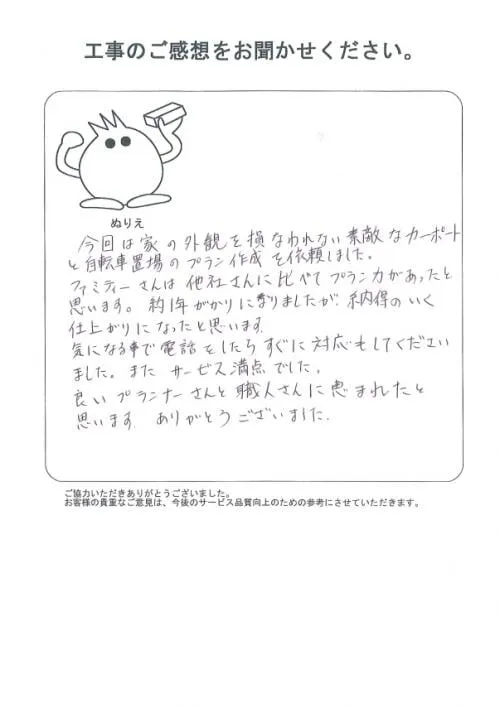 工事のご感想をお聞かせください。
ぬりえ
今回は家の外観を損なわれない素敵なカーポート
と自転車置場のプラン作成を依頼しました。
ファミティーさんは他社さんに比べてプランカがあったと
思います。約1年がかりになりましたが、納得のいく
仕上がりになったと思います.
気になる事で電話をしたらすぐに対応もしてください
ました。また サービス満点でした。
良いプランナーさんと職人さんに恵まれたと
思います. ありがとうございました.
ご協力いただきありがとうございました。
お客様の貴重なご意見は、今後のサービス品質向上のための参考にさせていただきます。